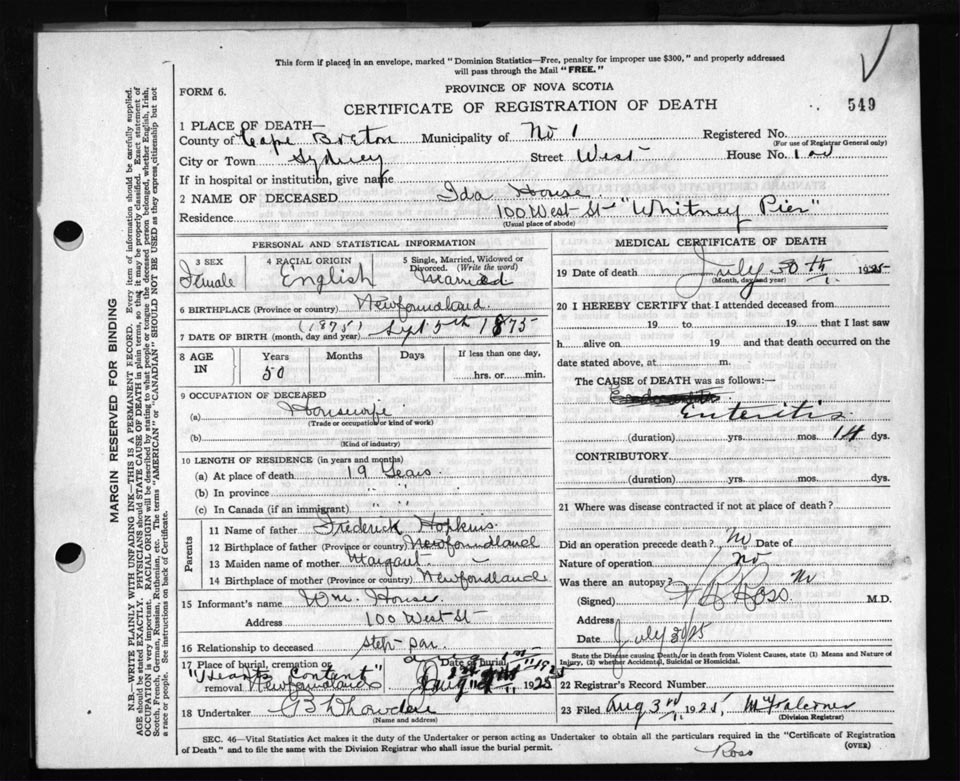 This form if placed in an envelope, marked "Dominion Statistics—Free, penalty for improper use $300," and properly addressed
will pass through the Mail "FREE."
FORM 6.
PROVINCE OF NOVA SCOTIA
CERTIFICATE OF REGISTRATION OF DEATH
549
1 PLACE OF DEATH—
County of Cape Breton Municipality of No 1 Registered No.
(For use of Registrar General only)
City or Town Sydney Street West House No. 100
If in hospital or institution, give name
2 NAME OF DECEASED Ida House
Residence 100 West St "Whitney Pier"
(Usual place of abode)
PERSONAL AND STATISTICAL INFORMATION
3 SEX
Female
4 RACIAL ORIGIN
English
5 Single, Married, Widowed or
Divorced. (Write the word)
Married
6 BIRTHPLACE (Province or country) Newfoundland
(1875)
7 DATE OF BIRTH (month, day and year) Sept 5th 1875
8 AGE
IN
Years
50
Months
Days
If less than one day,
hrs. or min.
9 OCCUPATION OF DECEASED
(a) Housewife
(Trade or occupation or kind of work)
(b)
(Kind of industry)
10 LENGTH OF RESIDENCE (in years and months)
(a) At place of death 19 Years.
(b) In province " "
(c) In Canada (if an immigrant) " "
Parents
11 Name of father Frederick Hopkins
12 Birthplace of father (Province or country) Newfoundland
13 Maiden name of mother Margaret
14 Birthplace of mother (Province or country) Newfoundland
15 Informant's name Wm. House
Address 100 West St
16 Relationship to deceased step son
17 Place of burial, cremation or
removal
"Hearts Content"
Newfoundland
Date of burial
Aug 1925
18 Undertaker
(Name and address)
MEDICAL CERTIFICATE OF DEATH
19 Date of death July 30th 1925
(Month, day and year)
20 I HEREBY CERTIFY that I attended deceased from
19 to 19 that I last saw
h alive on 19 and that death occurred on the
date stated above, at m.
The CAUSE of DEATH was as follows:—
Enteritis
(duration) yrs. mos. 14 dys.
CONTRIBUTORY
(duration) yrs. mos. dys.
21 Where was disease contracted if not at place of death?
Did an operation precede death? No Date of
Nature of operation No
Was there an autopsy? No
(Signed) Ross M.D.
Address
Date July 31/25
State the Disease causing Death, or in death from Violent Causes, state (1) Means and Nature of
Injury, (2) whether Accidental, Suicidal or Homicidal.
22 Registrar's Record Number
23 Filed Aug 3rd 1925,
(Division Registrar)
SEC. 46—Vital Statistics Act makes it the duty of the Undertaker or person acting as Undertaker to obtain all the particulars required in the "Certificate of Registration
of Death" and to file the same with the Division Registrar who shall issue the burial permit.
(OVER)
Ross
MARGIN RESERVED FOR BINDING
N.B.—WRITE PLAINLY WITH UNFADING INK—THIS IS A PERMANENT RECORD. Every item of information should be carefully supplied.
AGE should be stated EXACTLY. PHYSICIANS should STATE CAUSE OF DEATH in plain terms, so that it may be properly classified. Exact statement of
OCCUPATION is very important. RACIAL ORIGIN will be described by stating to what people or tongue the deceased person belonged, whether English, Irish,
Scotch, French, German, Russian, Ruthenian, etc. The terms "AMERICAN" or "CANADIAN" SHOULD NOT BE USED as they express citizenship but not
a race or people. See instructions on back of Certificate.